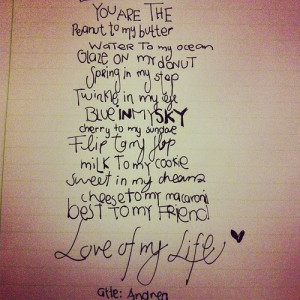 YOU ARE THE
Peanut to my butter
WATER TO my ocean
Glaze ON my DONUT
Spring in my step
Twinkle in my eye
BLUE IN MY SKY
cherry to my sundae
Flip to my flop
milk To my cookie
Sweet in my dreams
cheese to my macaroni
best to my FRIEND
Love of my Life
Atte: Andrea